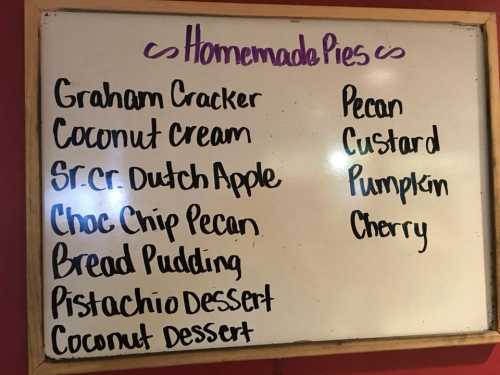 Homemade Pies
Graham Cracker
Coconut Cream
Sr. Cr. Dutch Apple
Choc Chip Pecan
Bread Pudding
Pistachio Dessert
Coconut Dessert
Pecan
Custard
Pumpkin
Cherry